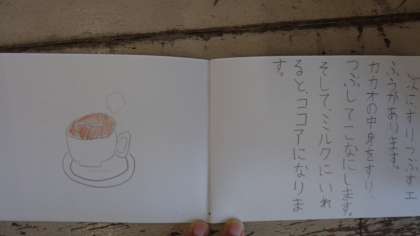 次にすりつぶすエ
ふうがあります。
カカオの中身をすり
つぶしてこなにします。
そして、ミルクにいれ
ると、ココアになりま
す。